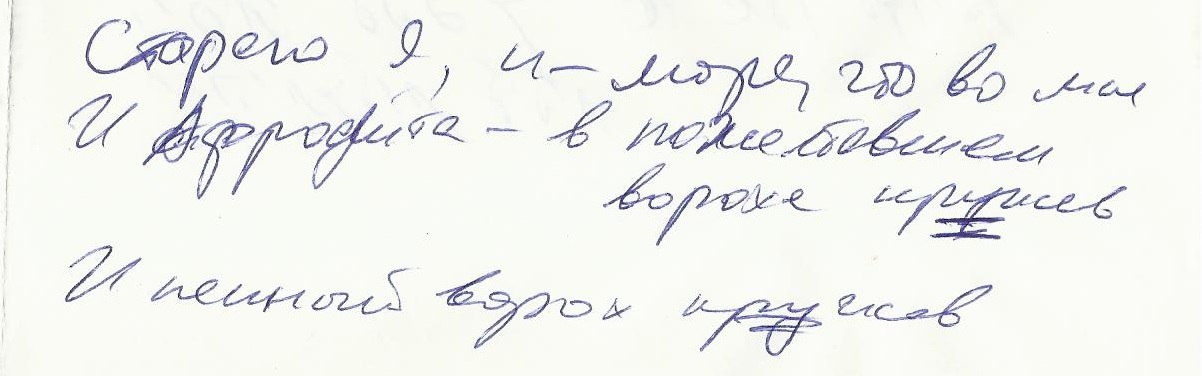 Старею я, и – море, что во мне
И Афродита – в пожелтевшем
ворохе кружев
И пенный ворох кружев